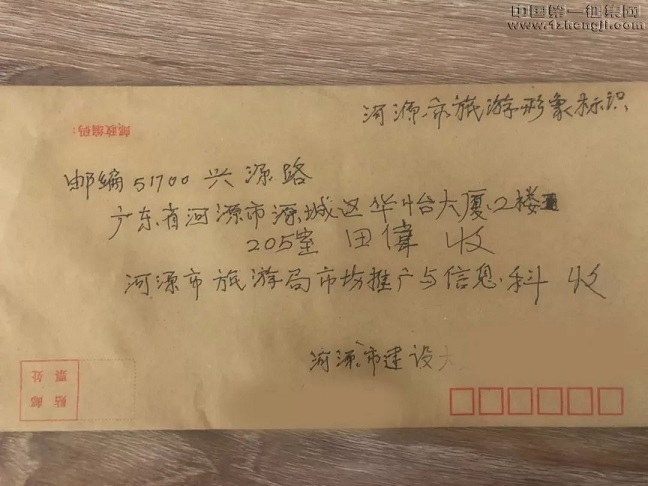 中国第一征集网
www.1zhengji.com
河源市旅游形象标识
邮政编码：
邮编51700 兴源路
广东省河源市源城区华怡大厦2楼
205室 田偉 收
河源市旅游局市场推广与信息科 收
河源市建设大
贴邮
票处